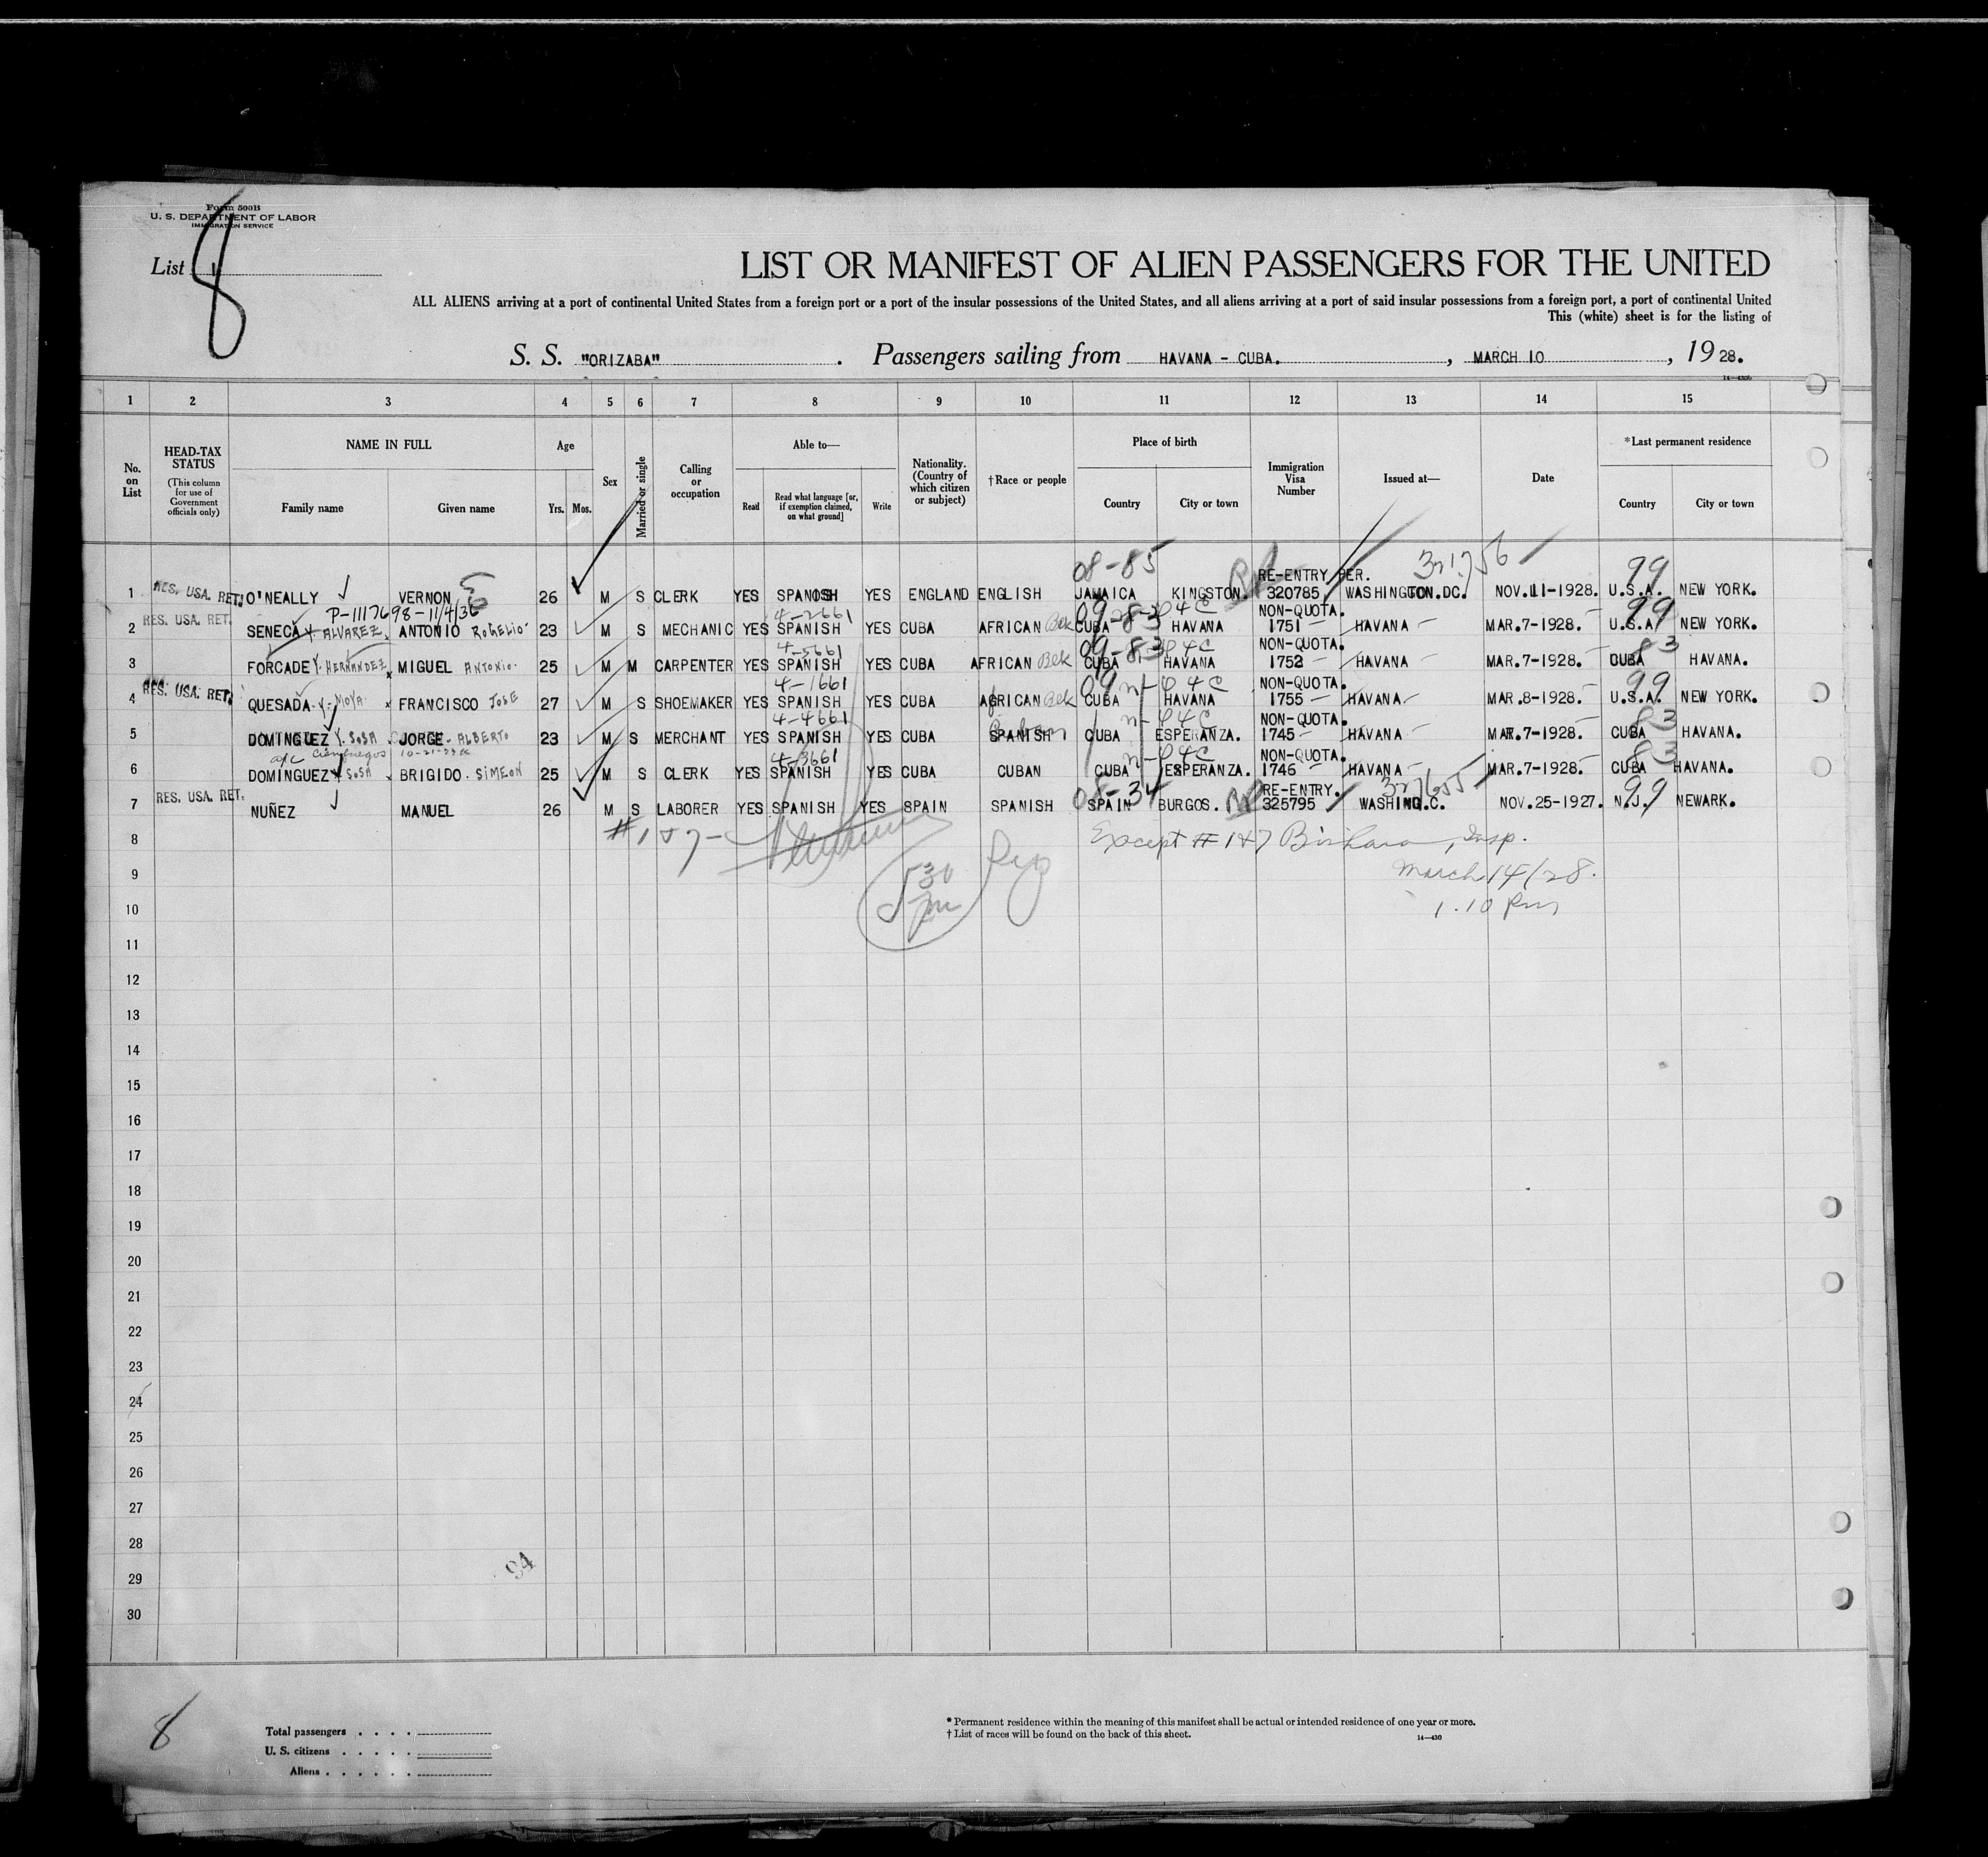 Form 500B
U. S. DEPARTMENT OF LABOR
IMMIGRATION SERVICE
8
List 1
LIST OR MANIFEST OF ALIEN PASSENGERS FOR THE UNITED
ALL ALIENS arriving at a port of continental United States from a foreign port or a port of the insular possessions of the United States, and all aliens arriving at a port of said insular possessions from a foreign port, a port of continental United
This (white) sheet is for the listing of
S. S. "ORIZABA". Passengers sailing from HAVANA - CUBA., MARCH 10, 1928.
14-430b
1 2 3 4 5 6 7 8 9 10 11 12 13 14 15
No. on List
HEAD-TAX STATUS
(This column for use of Government officials only)
NAME IN FULL
Family name Given name
Age
Yrs. Mos.
Sex
Married or single
Calling or occupation
Able to—
Read Read what language [or, if exemption claimed, on what ground] Write
Nationality. (Country of which citizen or subject)
†Race or people
Place of birth
Country City or town
Immigration Visa Number
Issued at—
Date
*Last permanent residence
Country City or town
08-85 99
RE-ENTRY PER.
1 RES. USA. RET. O'NEALLY VERNON 26 M S CLERK YES SPANISH YES ENGLAND ENGLISH JAMAICA KINGSTON 320785 WASHINGTON.DC. NOV.11-1928. U.S.A. NEW YORK.
P-1117698-11/4/36 4-2661 09-83 04C NON-QUOTA. 99
2 RES. USA. RET. SENECA Y ALVAREZ, ANTONIO ROGELIO 23 M S MECHANIC YES SPANISH YES CUBA AFRICAN Blk CUBA HAVANA 1751 HAVANA MAR.7-1928. U.S.A. NEW YORK.
4-5661 09-83 04C NON-QUOTA. 83
3 FORCADE Y. HERNANDEZ, MIGUEL ANTONIO. 25 M M CARPENTER YES SPANISH YES CUBA AFRICAN Blk CUBA HAVANA 1752 HAVANA MAR.7-1928. CUBA HAVANA.
4-1661 09 04C NON-QUOTA. 99
4 RES. USA. RET. QUESADA Y-MOYA FRANCISCO JOSE 27 M S SHOEMAKER YES SPANISH YES CUBA AFRICAN Blk CUBA HAVANA 1755 HAVANA MAR.8-1928. U.S.A. NEW YORK.
4-4661 04C NON-QUOTA. 83
5 DOMINGUEZ Y. SOSA JORGE-ALBERTO 23 M S MERCHANT YES SPANISH YES CUBA SPANISH Cuban CUBA ESPERANZA. 1745 HAVANA MAR.7-1928. CUBA HAVANA.
a/c Cienfuegos 4-3661 04C NON-QUOTA. 83
6 DOMINGUEZ Y SOSA BRIGIDO. SIMEON 25 M S CLERK YES SPANISH YES CUBA CUBAN CUBA ESPERANZA. 1746 HAVANA MAR.7-1928. CUBA HAVANA.
08-34 RE-ENTRY. 327655 99
7 RES. USA. RET. NUÑEZ MANUEL 26 M S LABORER YES SPANISH YES SPAIN SPANISH SPAIN BURGOS. 325795 WASHING.C. NOV.25-1927. N.J. NEWARK.
8 #1&7- Except #1&7 , Insp.
9 530 March 14/28.
10 1.10 Pm
11
12
13
14
15
16
17
18
19
20
21
22
23
24
25
26
27
28
29 94
30
8
Total passengers
U. S. citizens
Aliens
* Permanent residence within the meaning of this manifest shall be actual or intended residence of one year or more.
† List of races will be found on the back of this sheet.
14-430